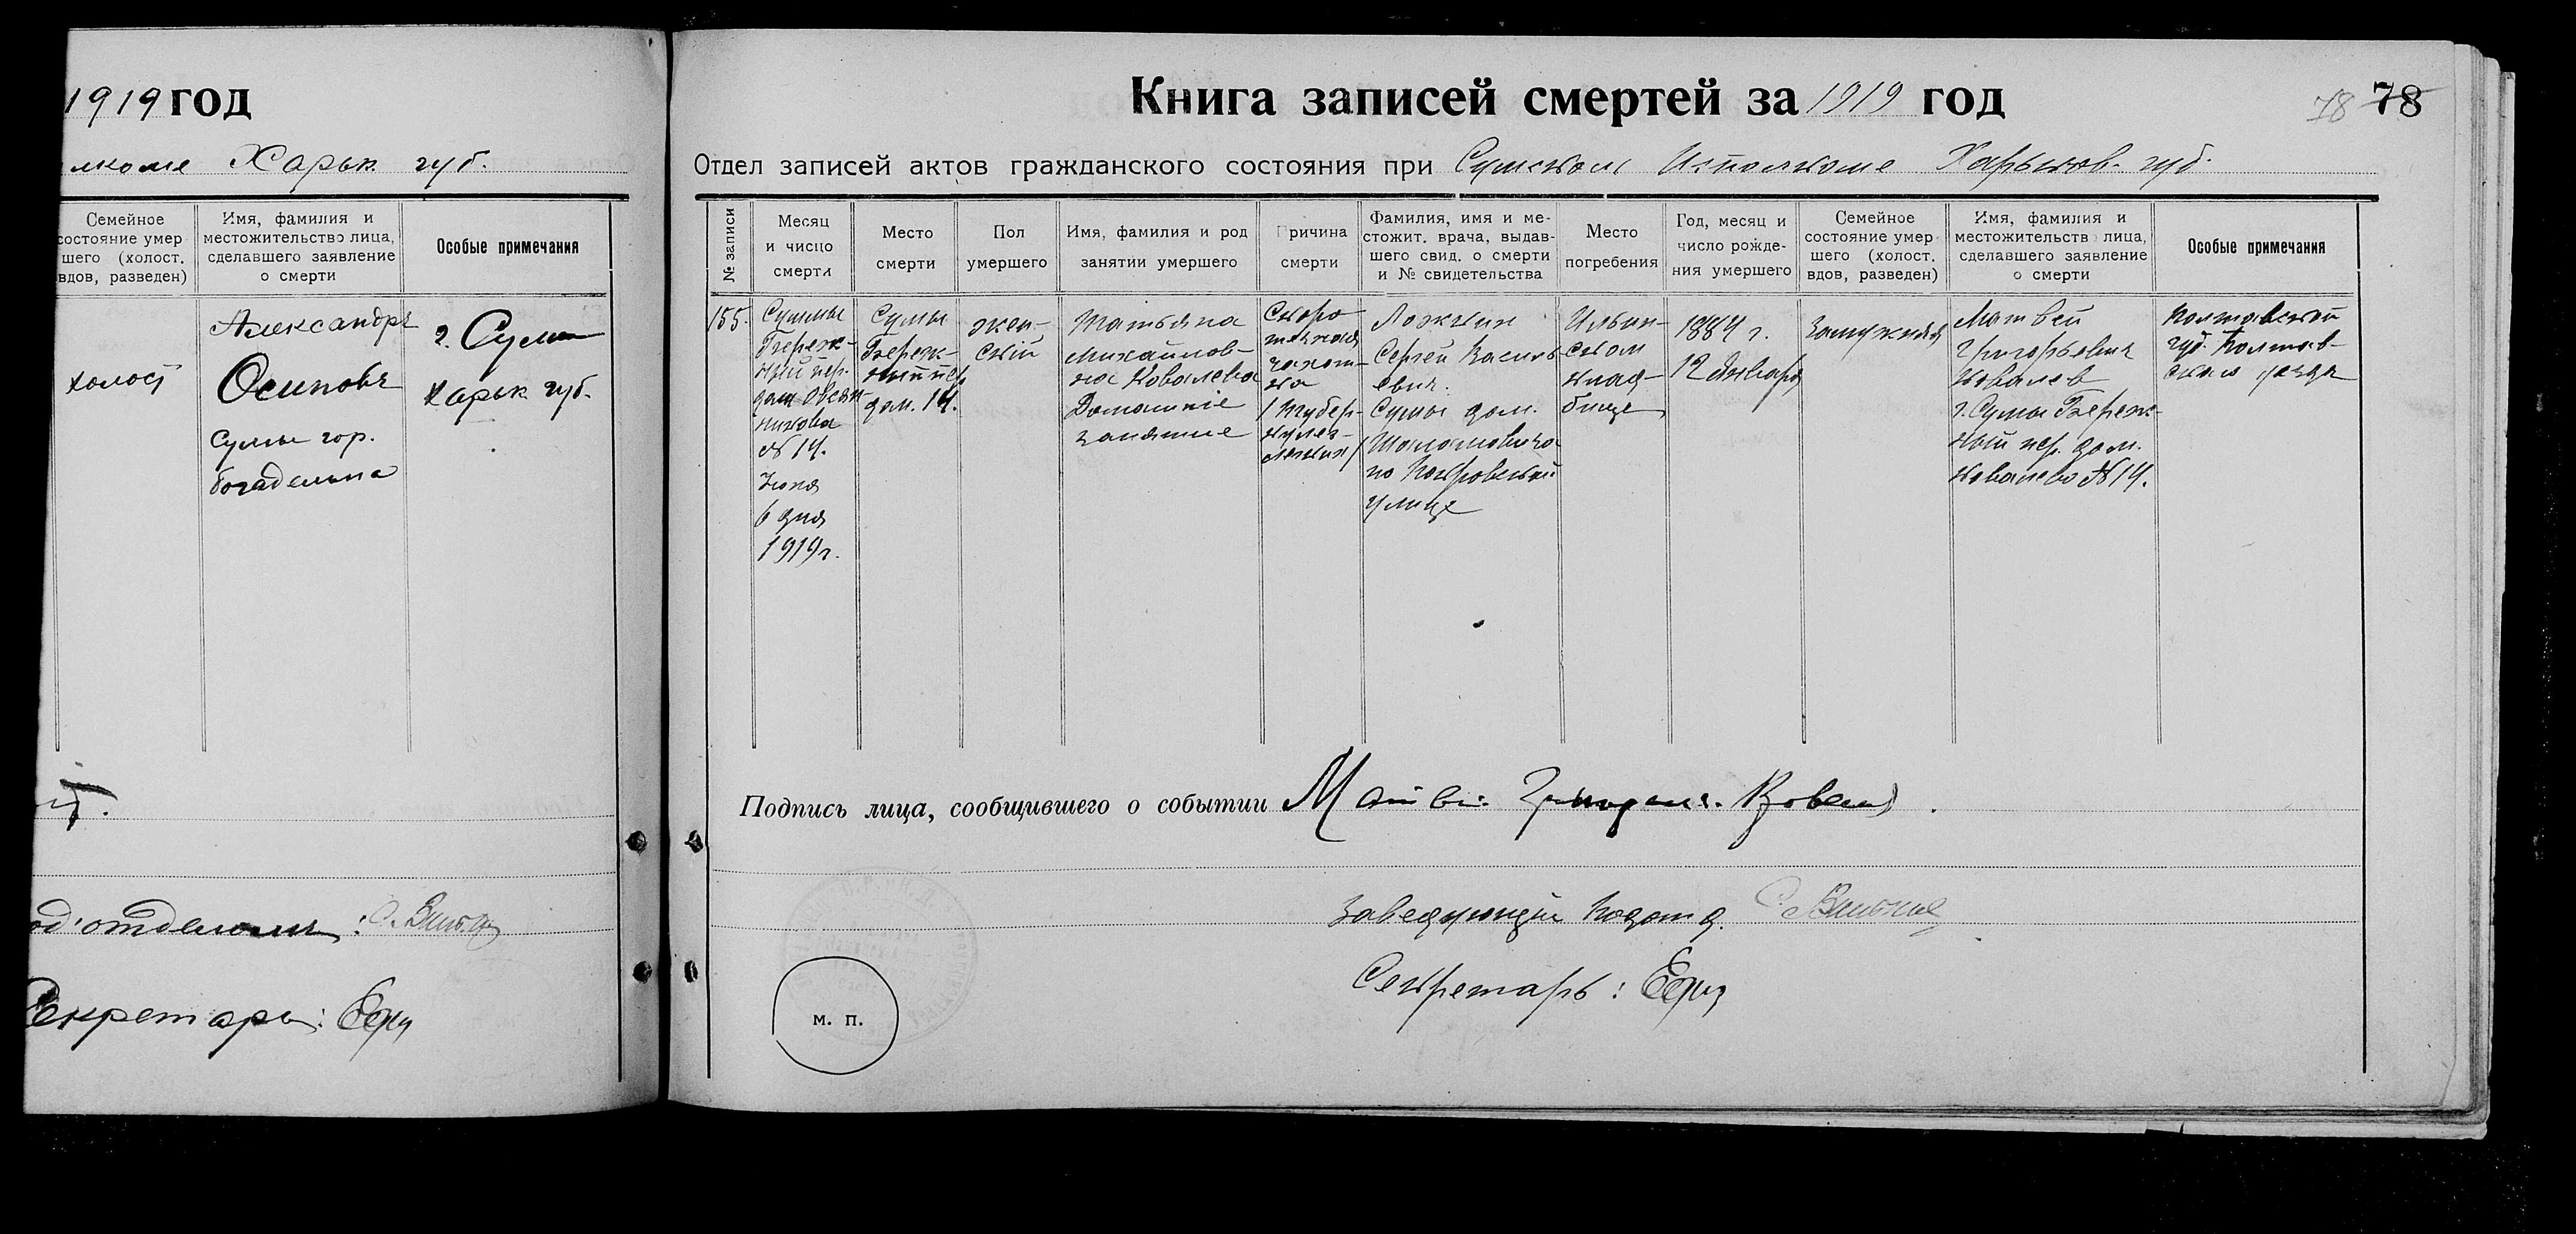 1919 год
лкоме Харьк. губ.
Семейное
состояние умер
шего (холост.
вдов, разведен)
Имя, фамилия и
местожительство лица,
сделавшего заявление
о смерти
Особые примечания
холост
Александръ
Осиповъ
Сумы гор.
богадельна
г. Сумы
Харьк губ.
од'отделом: С.
Секретарь:
Книга записей смертей за 1919 год
78 78
Отдел записей актов гражданского состояния при Сумском Исполкоме Харьков. губ.
№ записи
Месяц
и число
смерти
Место
смерти
Пол
умершего
Имя, фамилия и род
занятии умершего
Причина
смерти
Фамилия, имя и ме-
стожит. врача, выдав-
шего свид. о смерти
и № свидетельства
Место
погребения
Год, месяц и
число рожде-
ния умершего
Семейное
состояние умер
шего (холост.
вдов, разведен)
Имя, фамилия и
местожительств лица,
сделавшего заявление
о смерти
Особые примечания
155.
Суммы
Береж-
ный пер.
дом Овсян-
никова
№ 14.
Iюня
6 дня
1919 г.
Сумы
Береж-
ный
дом. 14.
жен-
скiй
Татьяна
Михайлов-
на Ковалева
Домашнiе
занятие
Скоро
течная
чахот-
ка
(туберкулез
легких)
Ложкин
Сергей Василь
евич.
Сумы дом.
по Покровской
улице
Ильин-
ском
клад-
бище
1884 г.
12 Января
Замужняя
Матвей
Григорьевич
Ковалев
г. Сумы Береж-
ный пер. дом.
Ковалева № 14.
Полтавской
губ. Полтав-
скаго уезда
Подпись лица, сообщившего о событии Матвей
Заведующий Подотд. С.
Секретарь:
м. п.